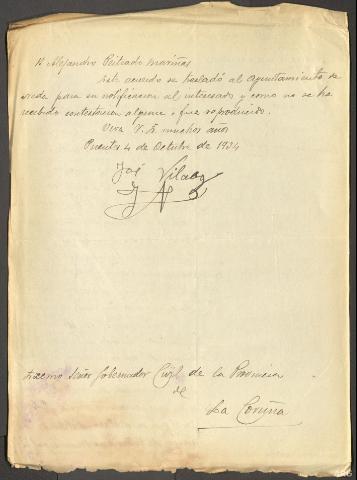 D. Alejandro Peiteado Mariñas
Este acuerdo se trasladó al Ayuntamiento de
para su notificación al interesado y como no se ha
recibido contestación alguna, fué reproducido.
Viva V. E. muchos años
Puentes 4 de Octubre de 1934
José Vilaboy
Excmo Señor Gobernador Civil de la Provincia
de
La Coruña